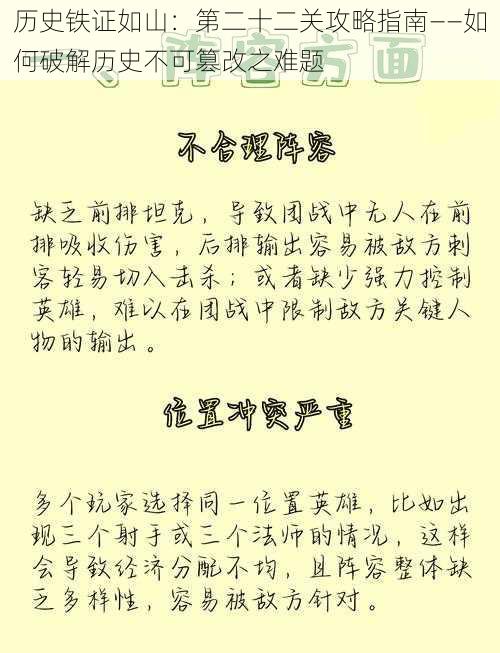 历史铁证如山：第二十二关攻略指南——如
何破解历史不可篡改之难题
、阵容方面
不合理阵容
缺乏前排坦克，导致团战中无人在前
排吸收伤害，后排输出容易被敌方刺
客轻易切入击杀；或者缺少强力控制
英雄，难以在团战中限制敌方关键人
物的输出。
位置冲突严重
多个玩家选择同一位置英雄，比如出
现三个射手或三个法师的情况，这样
会导致经济分配不均，且阵容整体缺
乏多样性，容易被敌方针对。